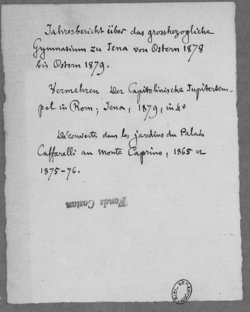 Jahresbericht über das grossherzogliche
Gymnasium zu Jena von Ostern 1878
bis Ostern 1879.
Vermehren. Der Capitolinische Jupitertem-
pel in Rom, Jena, 1879, in 4º
Découverte dans les jardins du Palais
Caffarelli au monte Caprino, 1865 et
1875-76.
Fonds Castan